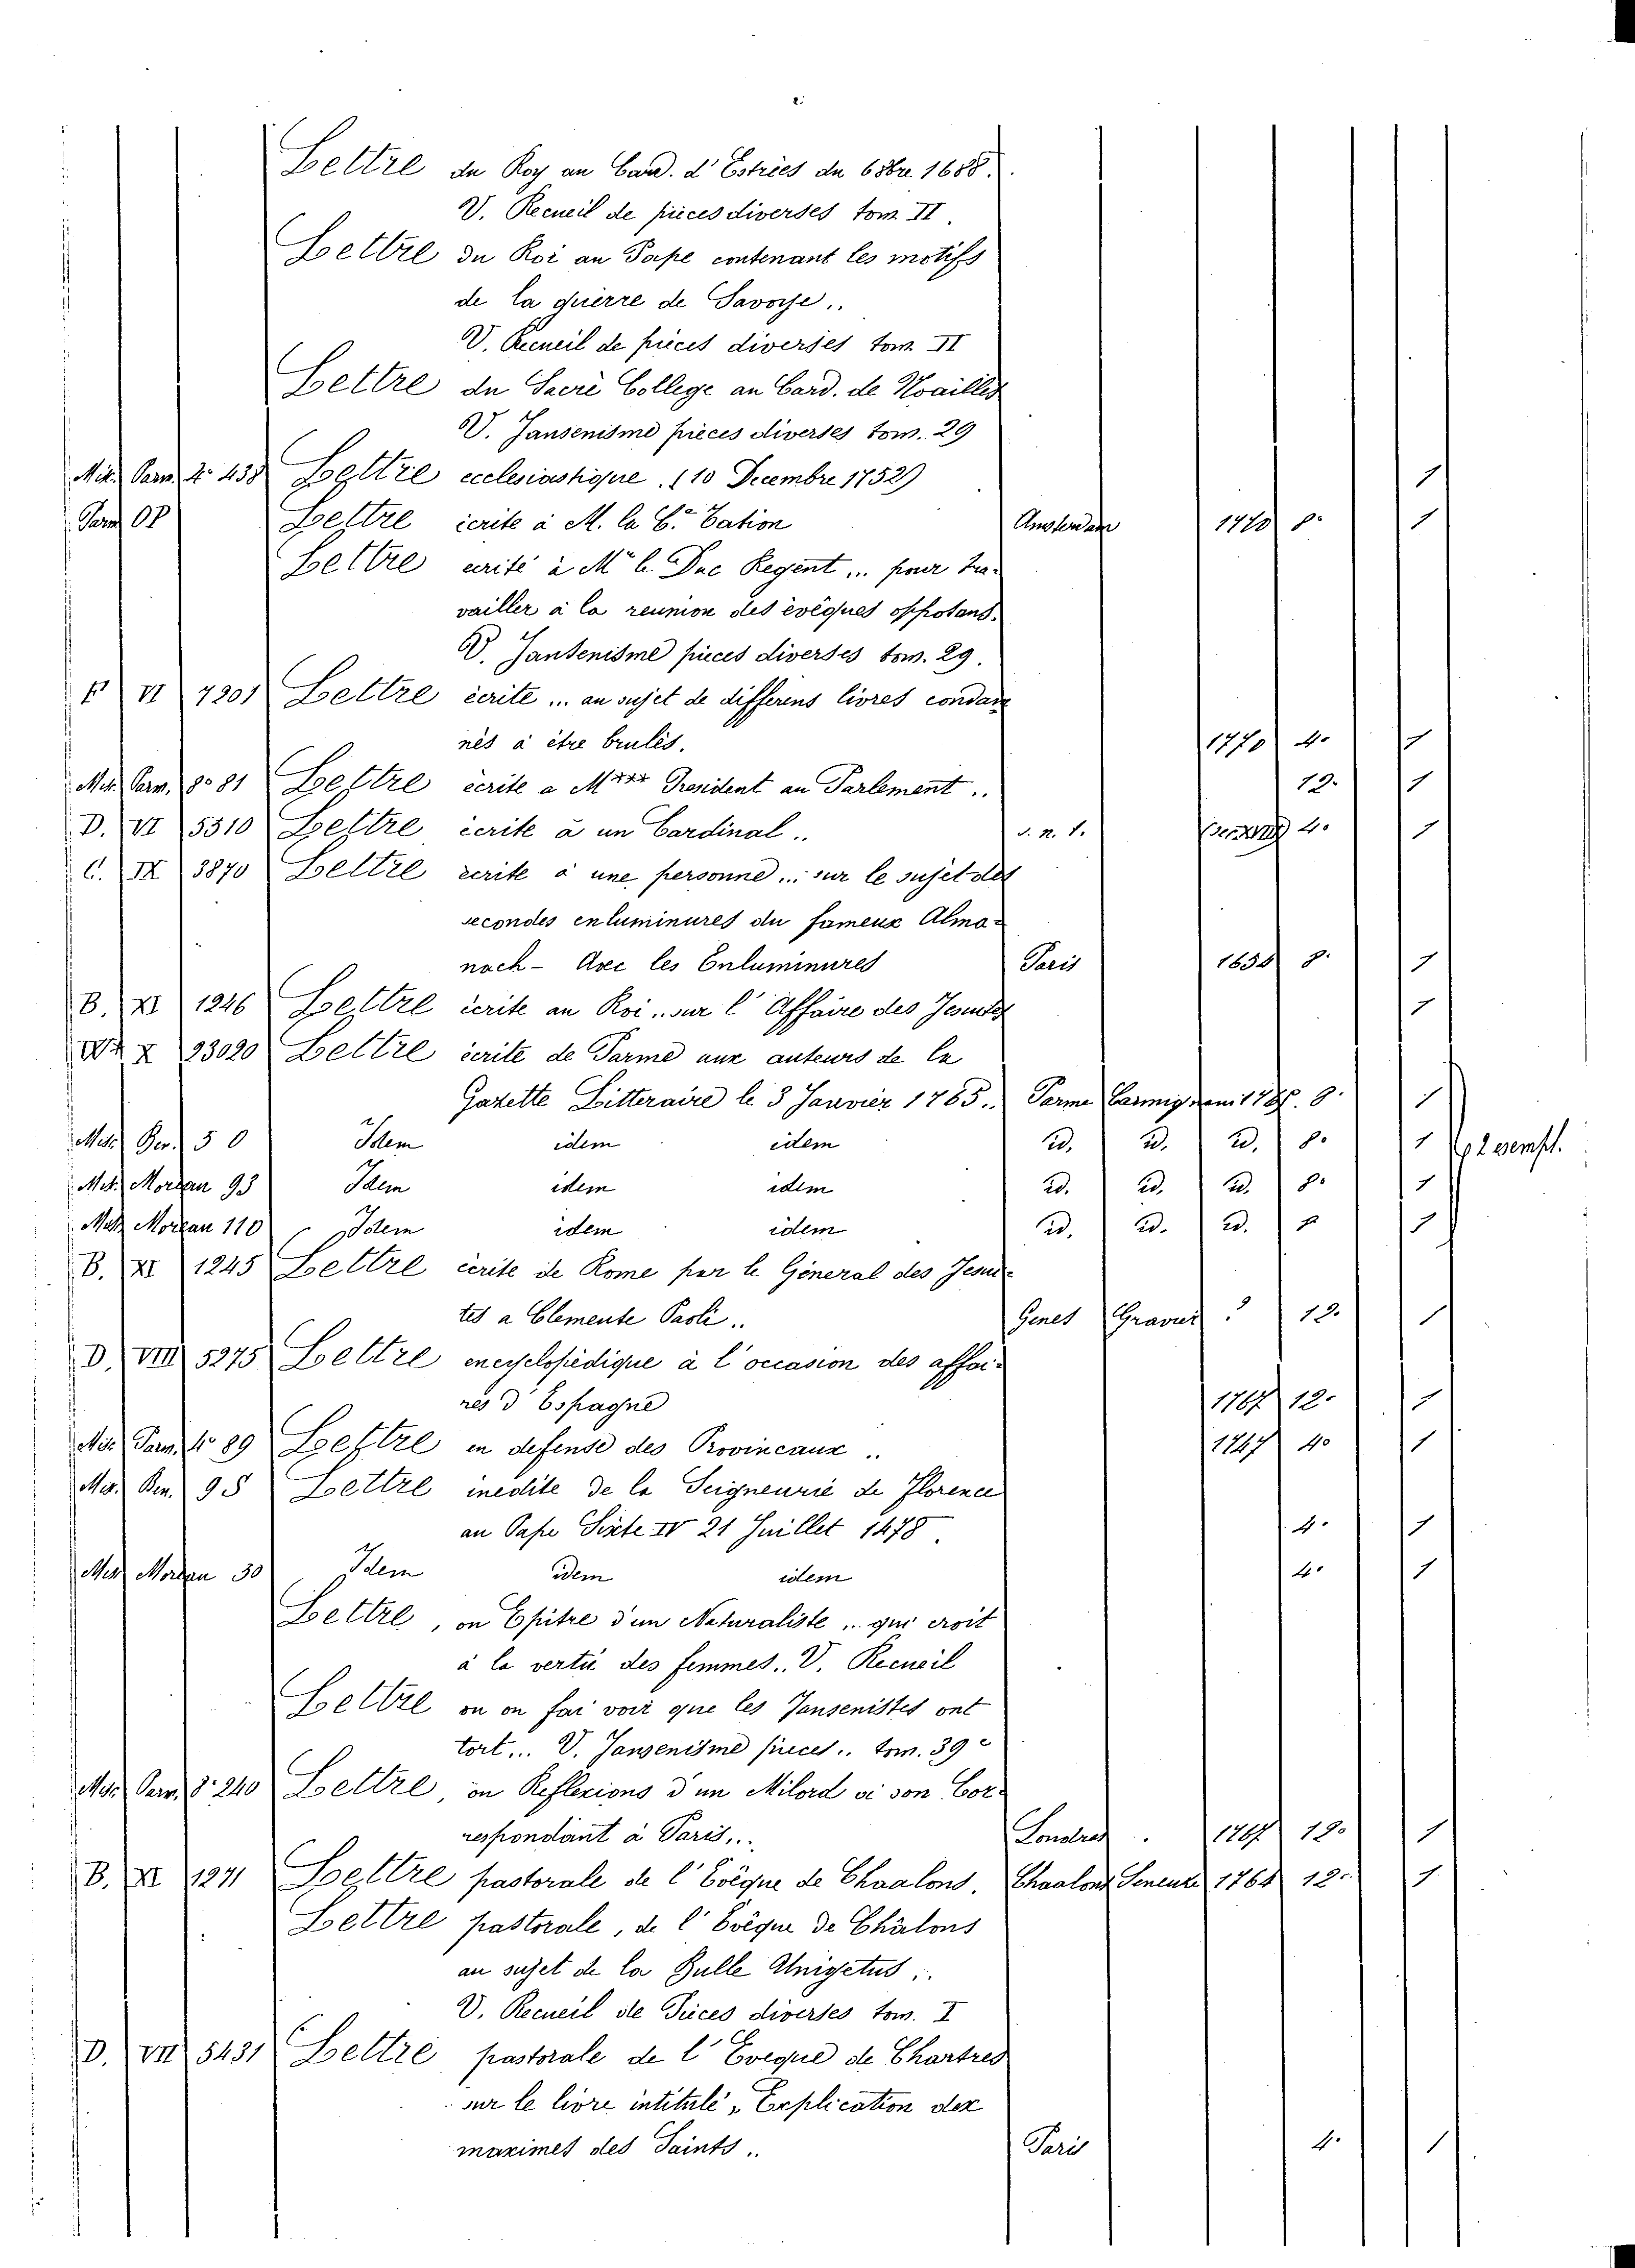 Lettre du Roy au Card. d'Estrées du 6 8bre 1688.
V. Recueil de pièces diverses tom. II.
Lettre du Roi au Pape contenant les motifs
de la guerre de Savoye..
V. Recueil de pièces diverses tom. II
Lettre du Sacré College au Card. de Noailles
V. Jansenisme pièces diverses tom. 29
Mis. Parm. 4° 438 Lettre ecclesiastique. (10 Decembre 1752) 1
Parm Lettre écrite à M. la C.se Cation Amsterdam 1770 8° 1
Lettre écrite à Mr le Duc Regent... pour tra-
vailler à la reunion des évêques opposans.
V. Jansenisme pièces diverses tom. 29.
F VI 7201 Lettre écrite... au sujet de differens livres condam
nés à être brulés. 1770 4° 1
Mis. Parm. 8° 81 Lettre écrite a M*** President au Parlement.. 12° 1
D. VI 5310 Lettre écrite à un Cardinal.. s. n. t. 4° 1
C. IX 3870 Lettre écrite à une personne... sur le sujet des
secondes enluminures du fameux Alma-
nach - Avec les Enluminures Paris 1654 8° 1
B. XI 1246 Lettre écrite au Roi.. sur l'Affaire des Jesuites 1
W* X 23020 Lettre écrite de Parme aux auteurs de la
Gazette Litteraire le 3 Janvier 1765.. Parme 8° 1
Mis. Ber. 50 Idem idem idem id. id. id. 8° 1
Mis. Moreau 93 Idem idem idem id. id. id. 8° 1
Mis. Moreau 110 Idem idem idem id. id. id. 1
B. XI 1245 Lettre écrite de Rome par le Géneral des Jesui-
tes a Clemente Paoli.. Genes Gravier ? 12° 1
D. VIII 5275 Lettre encyclopédique à l'occasion des affai-
res d'Espagne 1767 12° 1
Mis. Parm. 4° 89 Lettre en defense des Provincaux.. 1747 4° 1
Mis. Ben. 95 Lettre inedite de la Seigneurie de Florence
au Pape Sixte IV 21 Juillet 1478. 4° 1
Mis. Moreau 30 Idem idem idem 4° 1
Lettre, ou Epitre d'un Naturaliste.. qui croit
à la vertu des femmes.. V. Recueil
Lettre ou on fai voir que les Jansenistes ont
tort... V. Jansenisme pieces.. tom. 39
Mis. Parm. 8° 240 Lettre, ou Reflexions d'un Milord à son Cor-
respondant à Paris,.. Londres. 1767 12° 1
B. XI 1271 Lettre pastorale de l'Evêque de Chaalons, Chaalons Seneuze 1764 12° 1
Lettre pastorale, de l'Evêque de Châlons
au sujet de la Bulle Unigetus..
V. Recueil de Pièces diverses tom. I
D. VII 5431 Lettre pastorale de l'Evêque de Chartres
sur le livre intitulé „Explication des
maximes des Saints.. Paris 4° 1